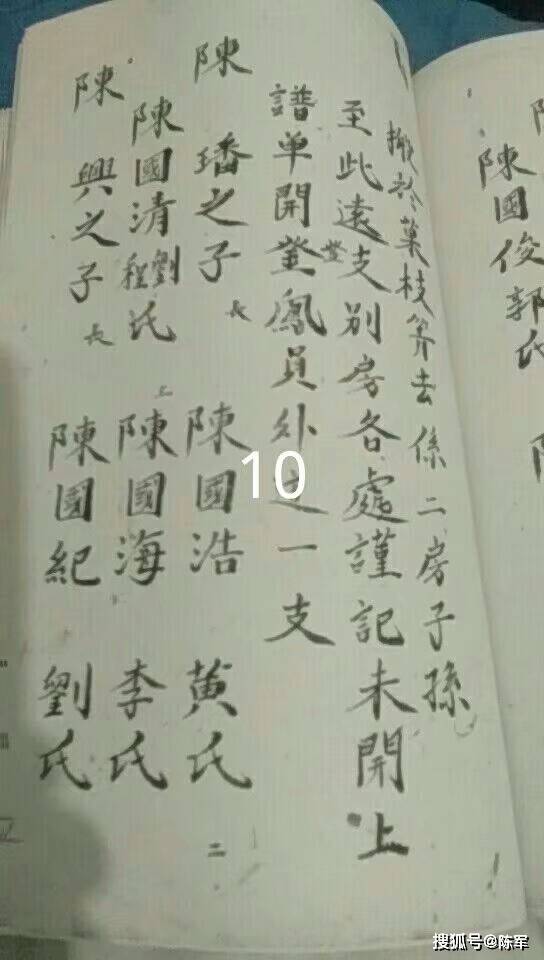 陳國俊 郭氏
搬於葉枝笄去係二房子孫
至此遠登支別房各處謹記未開上
譜单開登鳳員外之一支
陳 璠之子 長 陳國浩 黄氏 二
陳國清 劉程氏 上 陳國海 李氏
陳 興之子 長 陳國紀 劉氏
10
搜狐号@陈军